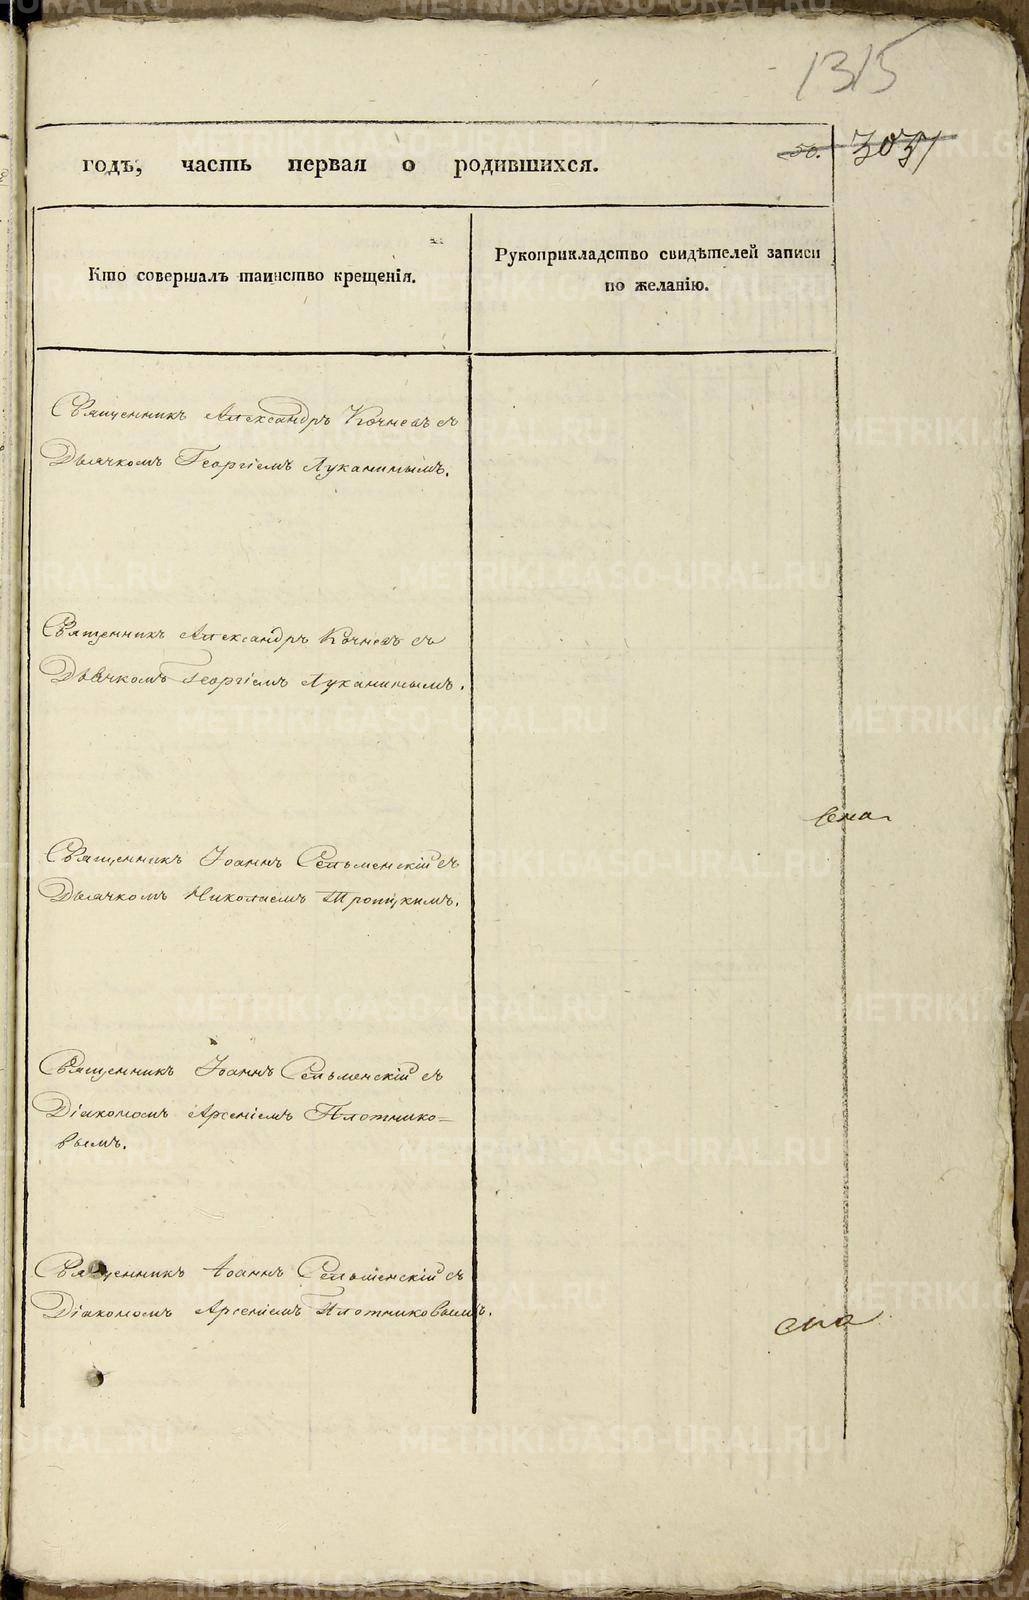 1315
годъ, часть первая о родившихся.
50.
Кто совершалъ таинство крещенія.
Рукоприкладство свидѣтелей записи
по желанію.
Священникъ Александръ Кочневъ съ
Дьячкомъ Георгіемъ Луканинымъ.
Священникъ Александръ Кочневъ съ
Дьячкомъ Георгіемъ Луканинымъ.
Священникъ Іоаннъ Сельменскій съ
Дьячкомъ Николаемъ Троицкимъ.
Священникъ Іоаннъ Сельменскій съ
Діакономъ Арсеніемъ Плотнико=
вымъ.
Священникъ Іоаннъ Сельменскій съ
Діакономъ Арсеніемъ Плотниковымъ.
METRIKI.GASO-URAL.RU